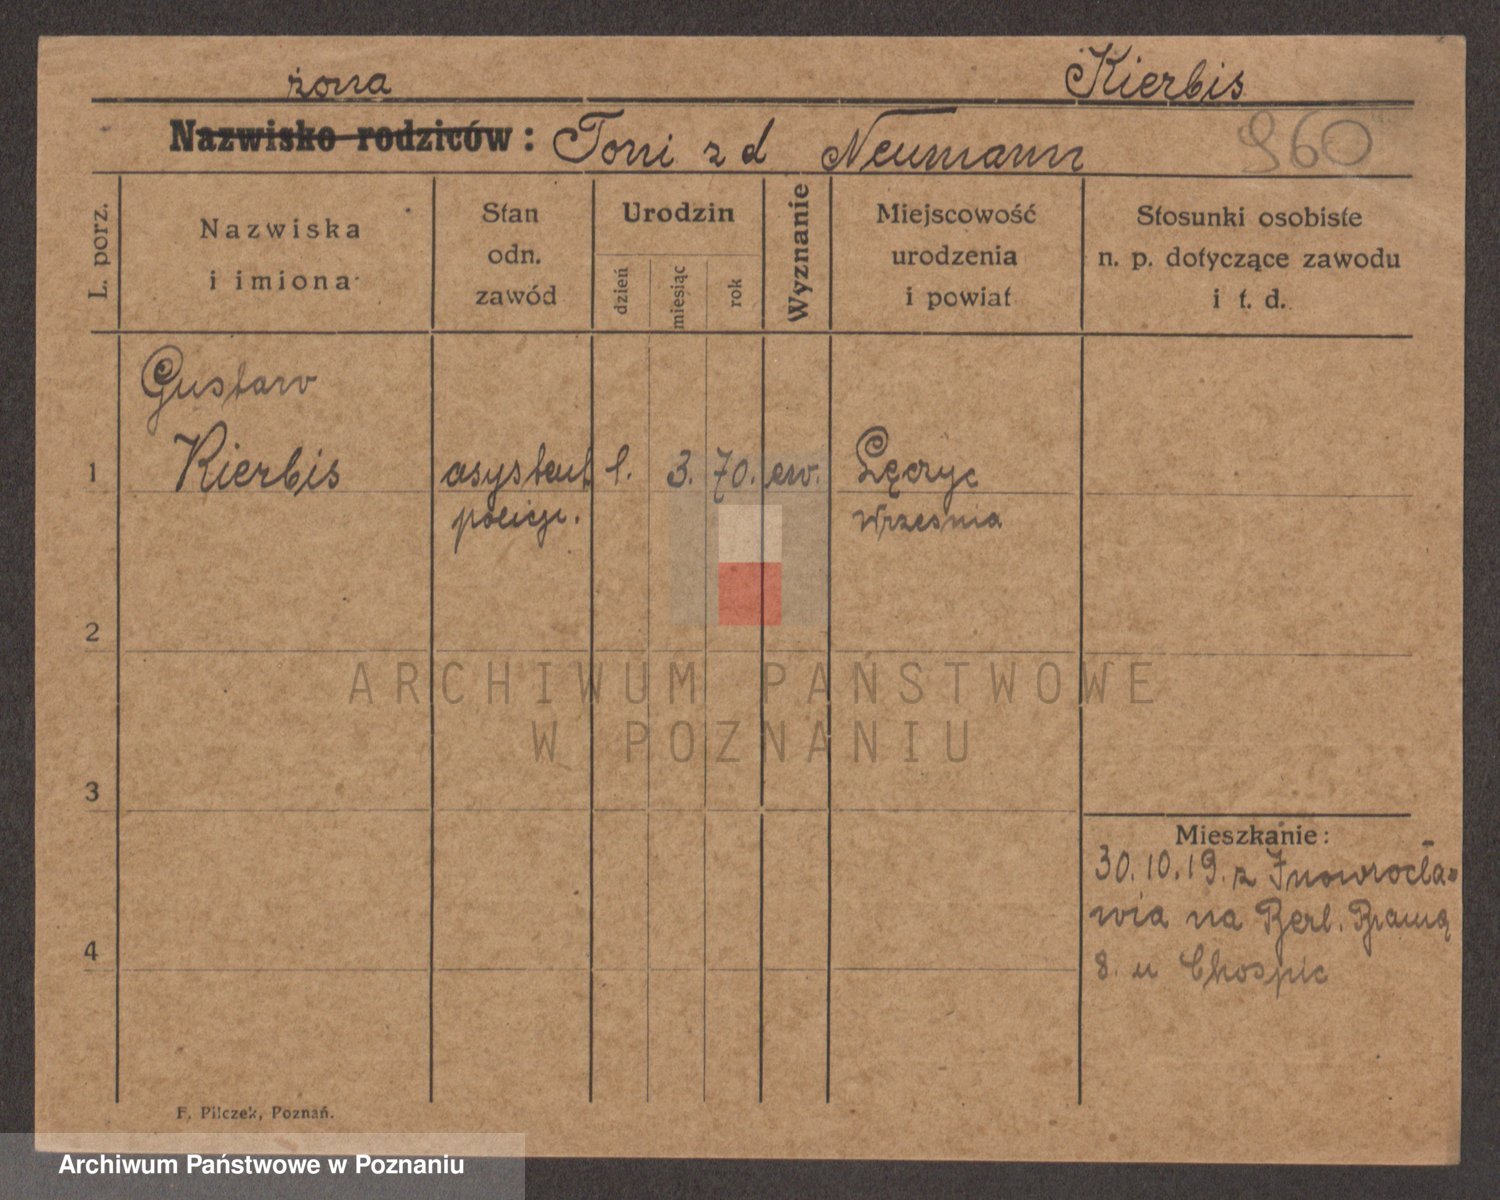 żona Kierbis
Nazwisko rodziców: Toni z d Neumann 960
L. porz.
Nazwiska
i imiona
Stan
odn.
zawód
Urodzin
dzień
miesiąc
rok
Wyznanie
Miejscowość
urodzenia
i powiat
Stosunki osobiste
n. p. dotyczące zawodu
i t. d.
Gustaw
1 Kierbis asystent 1. 3. 70. ew.
policji. Września
2
3
4
Mieszkanie:
30.10.19. z Inowrocła-
wia na Berl. Bramą
8. u Chospic
ARCHIWUM PAŃSTWOWE
W POZNANIU
F. Pilczek, Poznań.
Archiwum Państwowe w Poznaniu